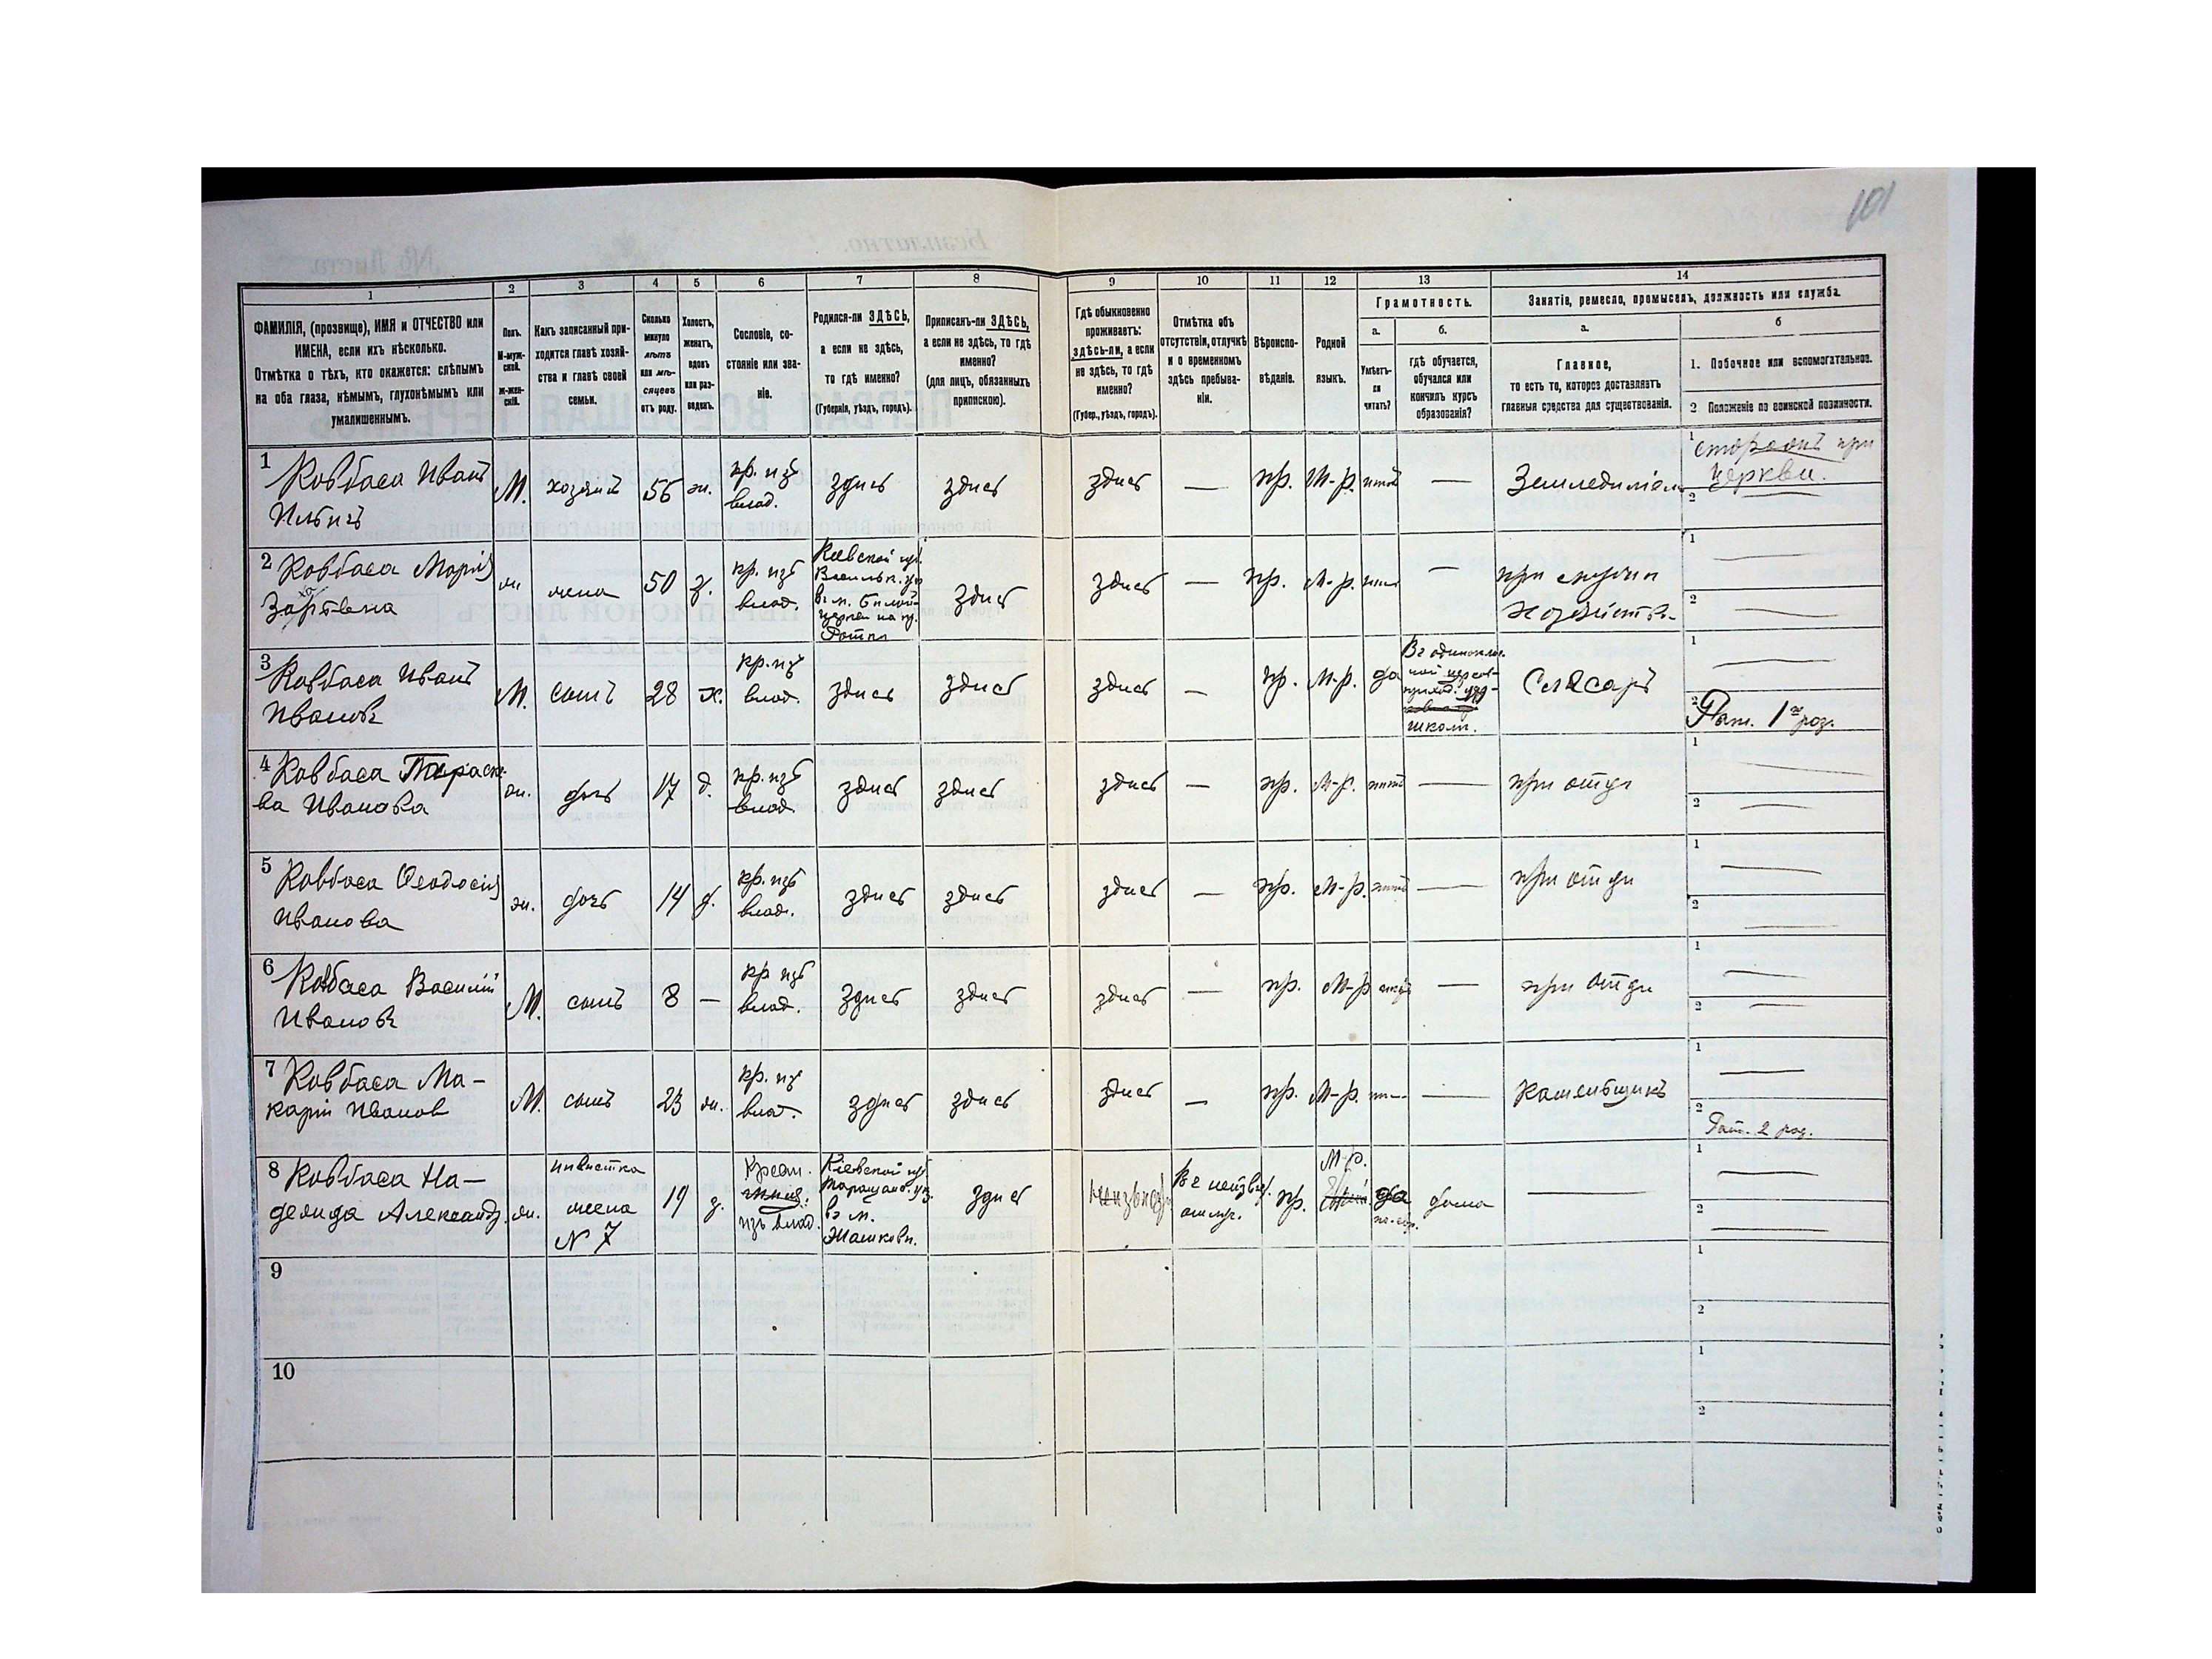 101
1
2
3
4
5
6
7
8
9
10
11
12
13
14
ФАМИЛІЯ, (прозвище), ИМЯ и ОТЧЕСТВО или
ИМЕНА, если ихъ нѣсколько.
Отмѣтка о тѣхъ, кто окажется: слѣпымъ
на оба глаза, нѣмымъ, глухонѣмымъ или
умалишеннымъ.
Полъ.
М-муж-
ской.
ж-жен-
скій.
Какъ записанный при-
ходится главѣ хозяй-
ства и главѣ своей
семьи.
Сколько
минуло
лѣтъ
или мѣ-
сяцевъ
отъ роду.
Холостъ,
женатъ,
вдовъ
или раз-
веденъ.
Сословіе, со-
стояніе или зва-
ніе.
Родился-ли ЗДѢСЬ,
а если не здѣсь,
то гдѣ именно?
(Губернія, уѣздъ, городъ).
Приписанъ-ли ЗДѢСЬ,
а если не здѣсь, то гдѣ
именно?
(для лицъ, обязанныхъ
припискою).
Гдѣ обыкновенно
проживаетъ:
здѣсь-ли, а если
не здѣсь, то гдѣ
именно?
(Губер., уѣздъ, городъ).
Отмѣтка объ
отсутствіи, отлучкѣ
и о временномъ
здѣсь пребыва-
ніи.
Вѣроиспо-
вѣданіе.
Родной
языкъ.
Грамотность.
а.
Умѣетъ-
ли
читать?
б.
гдѣ обучается,
обучался или
кончилъ курсъ
образованія?
Занятіе, ремесло, промыселъ, должность или служба.
а.
Главное,
то есть то, которое доставляетъ
главныя средства для существованія.
б
1. Побочное или вспомогательное.
2 Положеніе по воинской повинности.
1 Ковбаса Иванъ
Ильичъ
М. хозяинъ 56 ж. кр. изъ
влад. здись здись здись — пр. М-р. нитъ —
1 сторожъ при
церкви.
2
2 Ковбаса Марія
жена 50 з. кр. изъ
влад.
Кіевской губ.
здись здись — пр. М-р. —
при
1 —
2 —
3 Ковбаса Иванъ
Ивановъ
М. сынъ 28 х. кр. изъ
влад. здись здись здись — пр. М-р. да
школи.
Слѣсарь
1 —
2 Рат. 1 раз.
4 Ковбаса Параске-
ва Иванова
ж. дочь 17 д. кр. изъ
влад. здись здись здись — пр. М-р. нитъ — при отци
1 —
2 —
5 Ковбаса Феодосія
Иванова
ж. дочь 14 д. кр. изъ
влад. здись здись здись — пр. М-р. нитъ — при отци
1 —
2 —
6 Ковбаса Василій
Ивановъ
М. сынъ 8 — кр изъ
влад. здись здись здись — пр. М-р нитъ — при отци
1 —
2 —
7 Ковбаса Ма-
карій Иванов
М. сынъ 23 ж. кр. изъ
влад. здись здись здись — пр. М-р. —
1 —
2 Рат. 2 раз.
8 Ковбаса На-
дежда Александ.
ж. нивистка
жена
№ 7
19 з. Крест.
изъ влад.
Кіевской губ
Таращанс. уз.
въ м.
Жашкови.
здись
пр. М-р.
да
дома —
1 —
2 —
9
1
2
10
1
2